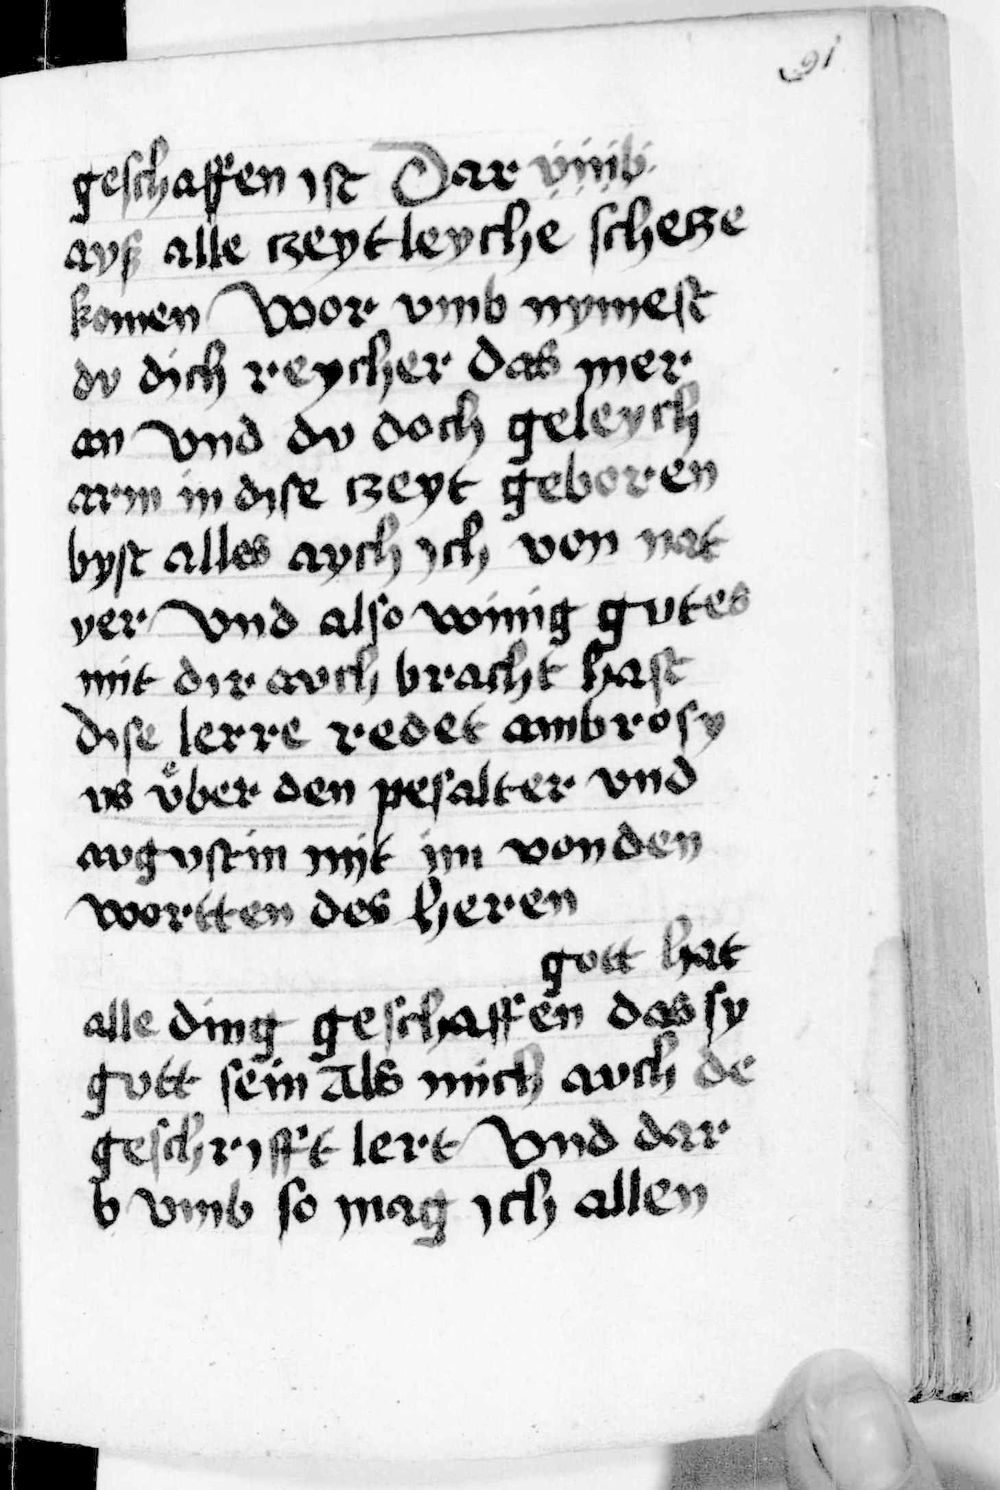 91
geschaffen ist Dar vmb
ayß alle czeytleyche schetze
komen Wor vmb nymest
dv dich reycher das mer
an Vnd dv doch geleych
arm in dise czeyt geboren
byst alles aych ich von nat
yer Vnd also winig gvtes
mit dir avch bracht hast
Dise lerre redet ambrosy
vs vͤber den pesalter vnd
avgvstin mit im von den
wortten des heren
gott hat
alle ding geschaffen das sy
gott sein Als mich avch de
geschrifft lert Vnd dar
b vmb so mag ich allen